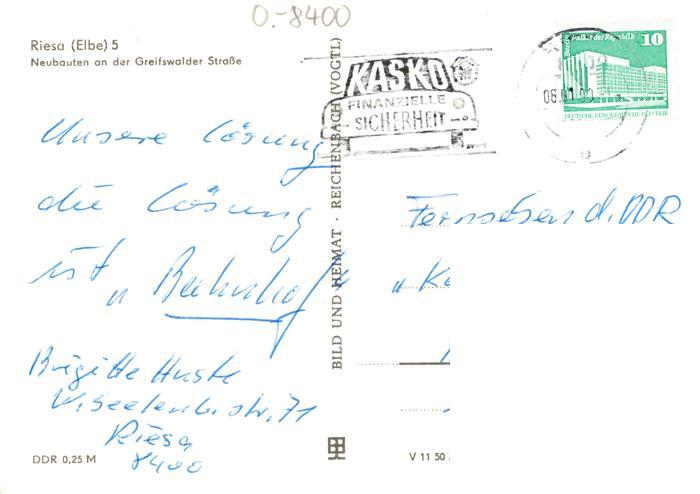 O.-8400
Riesa (Elbe) 5
Neubauten an der Greifswalder Straße
KASKO
FINANZIELLE
SICHERHEIT
10
Berlin, Palast der Republik
DEUTSCHE DEMOKRATISCHE REPUBLIK
BILD UND HEIMAT · REICHENBACH (VOGTL)
Unsere Lösung
die Lösung
ist „Bahnhof"
Brigitte
str. 71
Riesa
8400
Fernsehen d. DDR
DDR 0,25 M
V 11 50